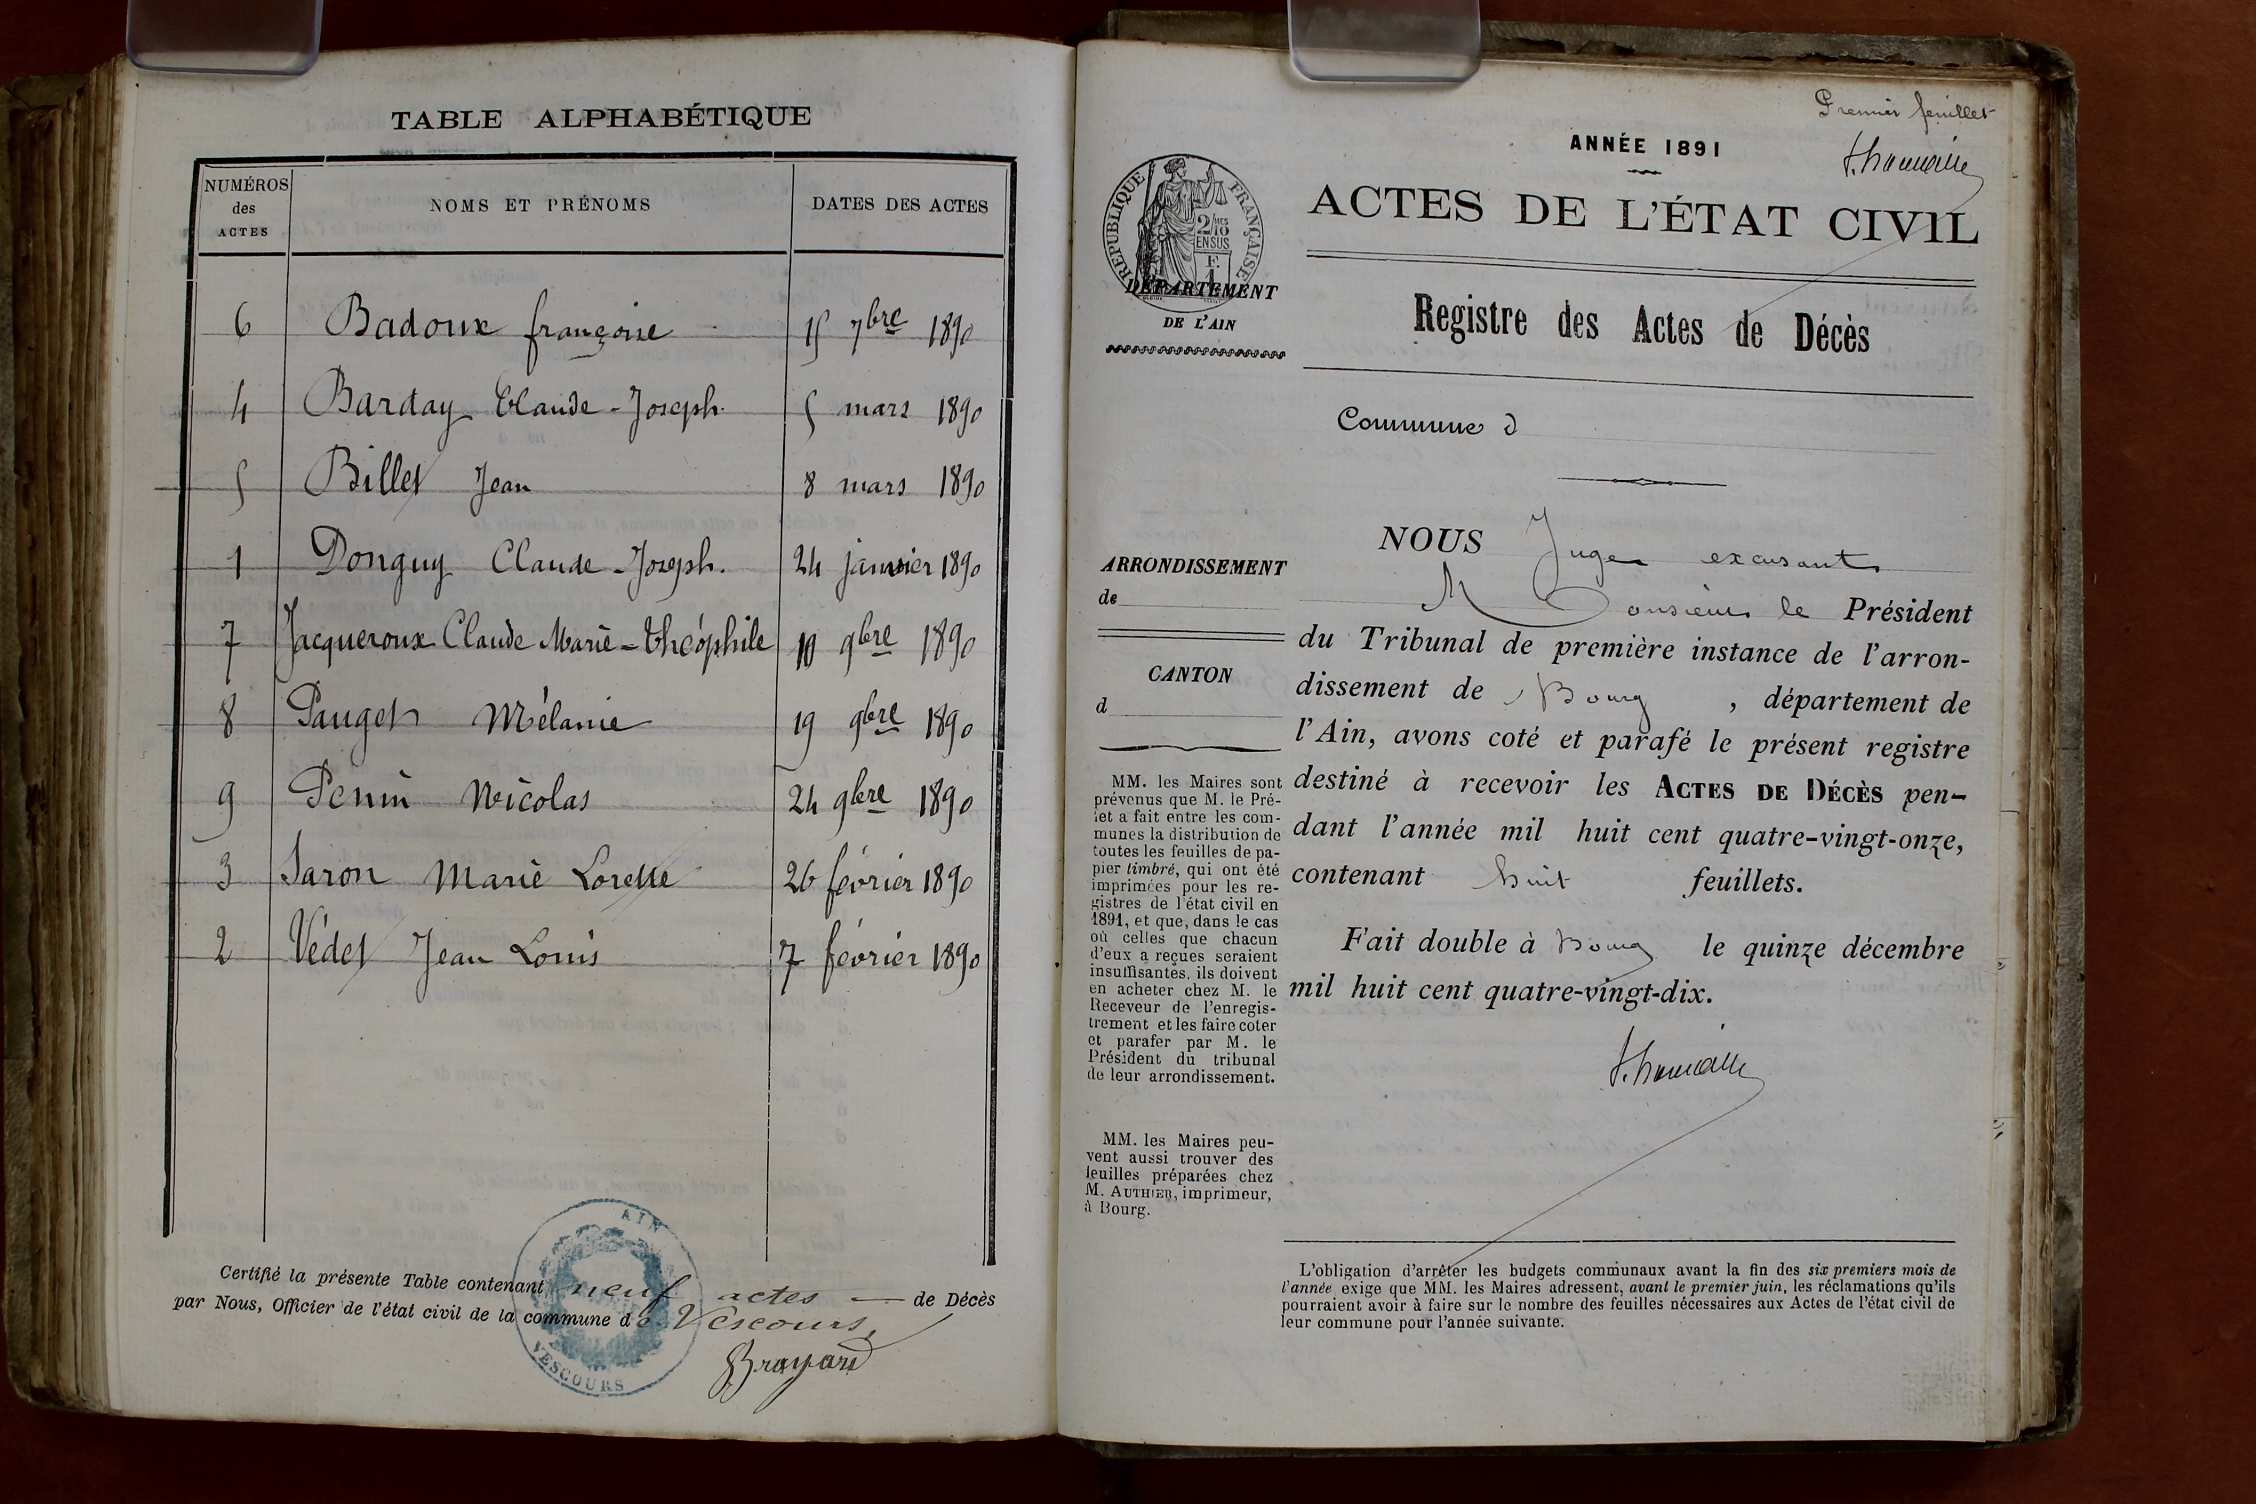 TABLE ALPHABÉTIQUE
NUMÉROS des ACTES NOMS ET PRÉNOMS DATES DES ACTES
6 Badoux françoise 15 7bre 1890
4 Barday Claude-Joseph 5 mars 1890
5 Billet Jean 8 mars 1890
1 Donguy Claude-Joseph. 24 janvier 1890
7 Jacqueroux Claude Marie-théophile 10 9bre 1890
8 Pauget Mélanie 19 9bre 1890
9 Penin Nicolas 24 9bre 1890
3 Saron Marie Lorette 26 février 1890
2 Védet Jean Louis 7 février 1890
Certifié la présente Table contenant neuf actes — de Décès
par Nous, Officier de l'état civil de la commune de Vescours,
AIN
VESCOURS
Brayard
Premier feuillet
ANNÉE 1891
ACTES DE L'ÉTAT CIVIL
RÉPUBLIQUE FRANÇAISE
2/10MES
EN SUS
F.
1
DÉPARTEMENT
DE L'AIN
Registre des Actes de Décès
Commune d
ARRONDISSEMENT
de
CANTON
d
NOUS Juge excusant
Monsieur le Président
du Tribunal de première instance de l'arron-
dissement de Bourg, département de
l'Ain, avons coté et parafé le présent registre
destiné à recevoir les ACTES DE DÉCÈS pen-
dant l'année mil huit cent quatre-vingt-onze,
contenant huit feuillets.
Fait double à Bourg le quinze décembre
mil huit cent quatre-vingt-dix.
MM. les Maires sont
prévenus que M. le Pré-
fet a fait entre les com-
munes la distribution de
toutes les feuilles de pa-
pier timbré, qui ont été
imprimées pour les re-
gistres de l'état civil en
1891, et que, dans le cas
où celles que chacun
d'eux a reçues seraient
insuffisantes, ils doivent
en acheter chez M. le
Receveur de l'enregis-
trement et les faire coter
et parafer par M. le
Président du tribunal
de leur arrondissement.
MM. les Maires peu-
vent aussi trouver des
feuilles préparées chez
M. AUTHIER, imprimeur,
à Bourg.
L'obligation d'arrêter les budgets communaux avant la fin des six premiers mois de
l'année exige que MM. les Maires adressent, avant le premier juin, les réclamations qu'ils
pourraient avoir à faire sur le nombre des feuilles nécessaires aux Actes de l'état civil de
leur commune pour l'année suivante.